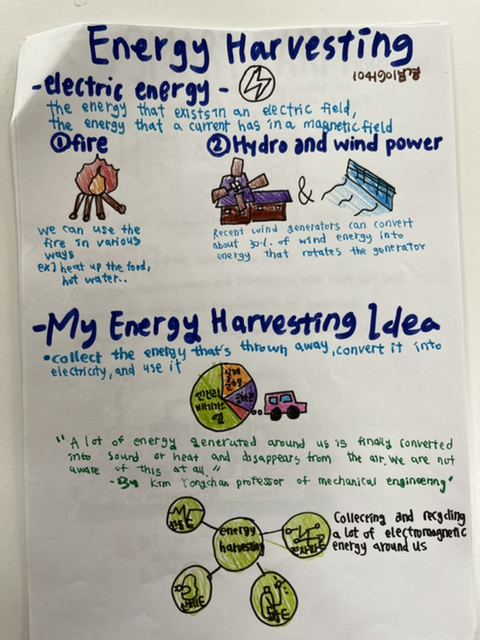 Energy Harvesting
-electric energy-
the energy that exists in an electric field,
the energy that a current has in a magnetic field
①fire
②Hydro and wind power
&
we can use the
fire in various
ways
ex) heat up the food,
hot water..
Recent wind generators can convert
about 30%. of wind energy into
energy that rotates the generator
-My Energy Harvesting Idea
•collect the energy that's thrown away, convert it into
electricity, and use it
엔진의
배기가스
열
"A lot of energy generated around us is finally converted
into sound or heat and disappears from the air. We are not
aware of this at all."
-By Kim Yongchan professor of mechanical engineering"
energy
harvesting
Collecting and recycling
a lot of electromagnetic
energy around us